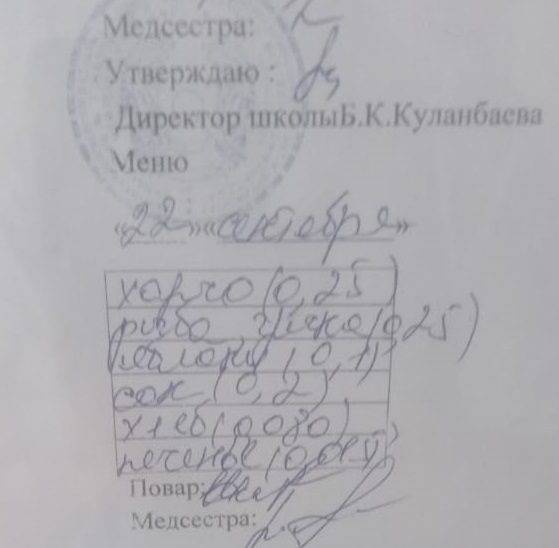 Медсестра:
Утверждаю :
Директор школыБ.К.Куланбаева
Меню
«22»«сентября»
харчо (0,25)
рыба, гречка (0,25)
(0,1)
сок (0,2)
хлеб (0,080)
печенье
Повар:
Медсестра: